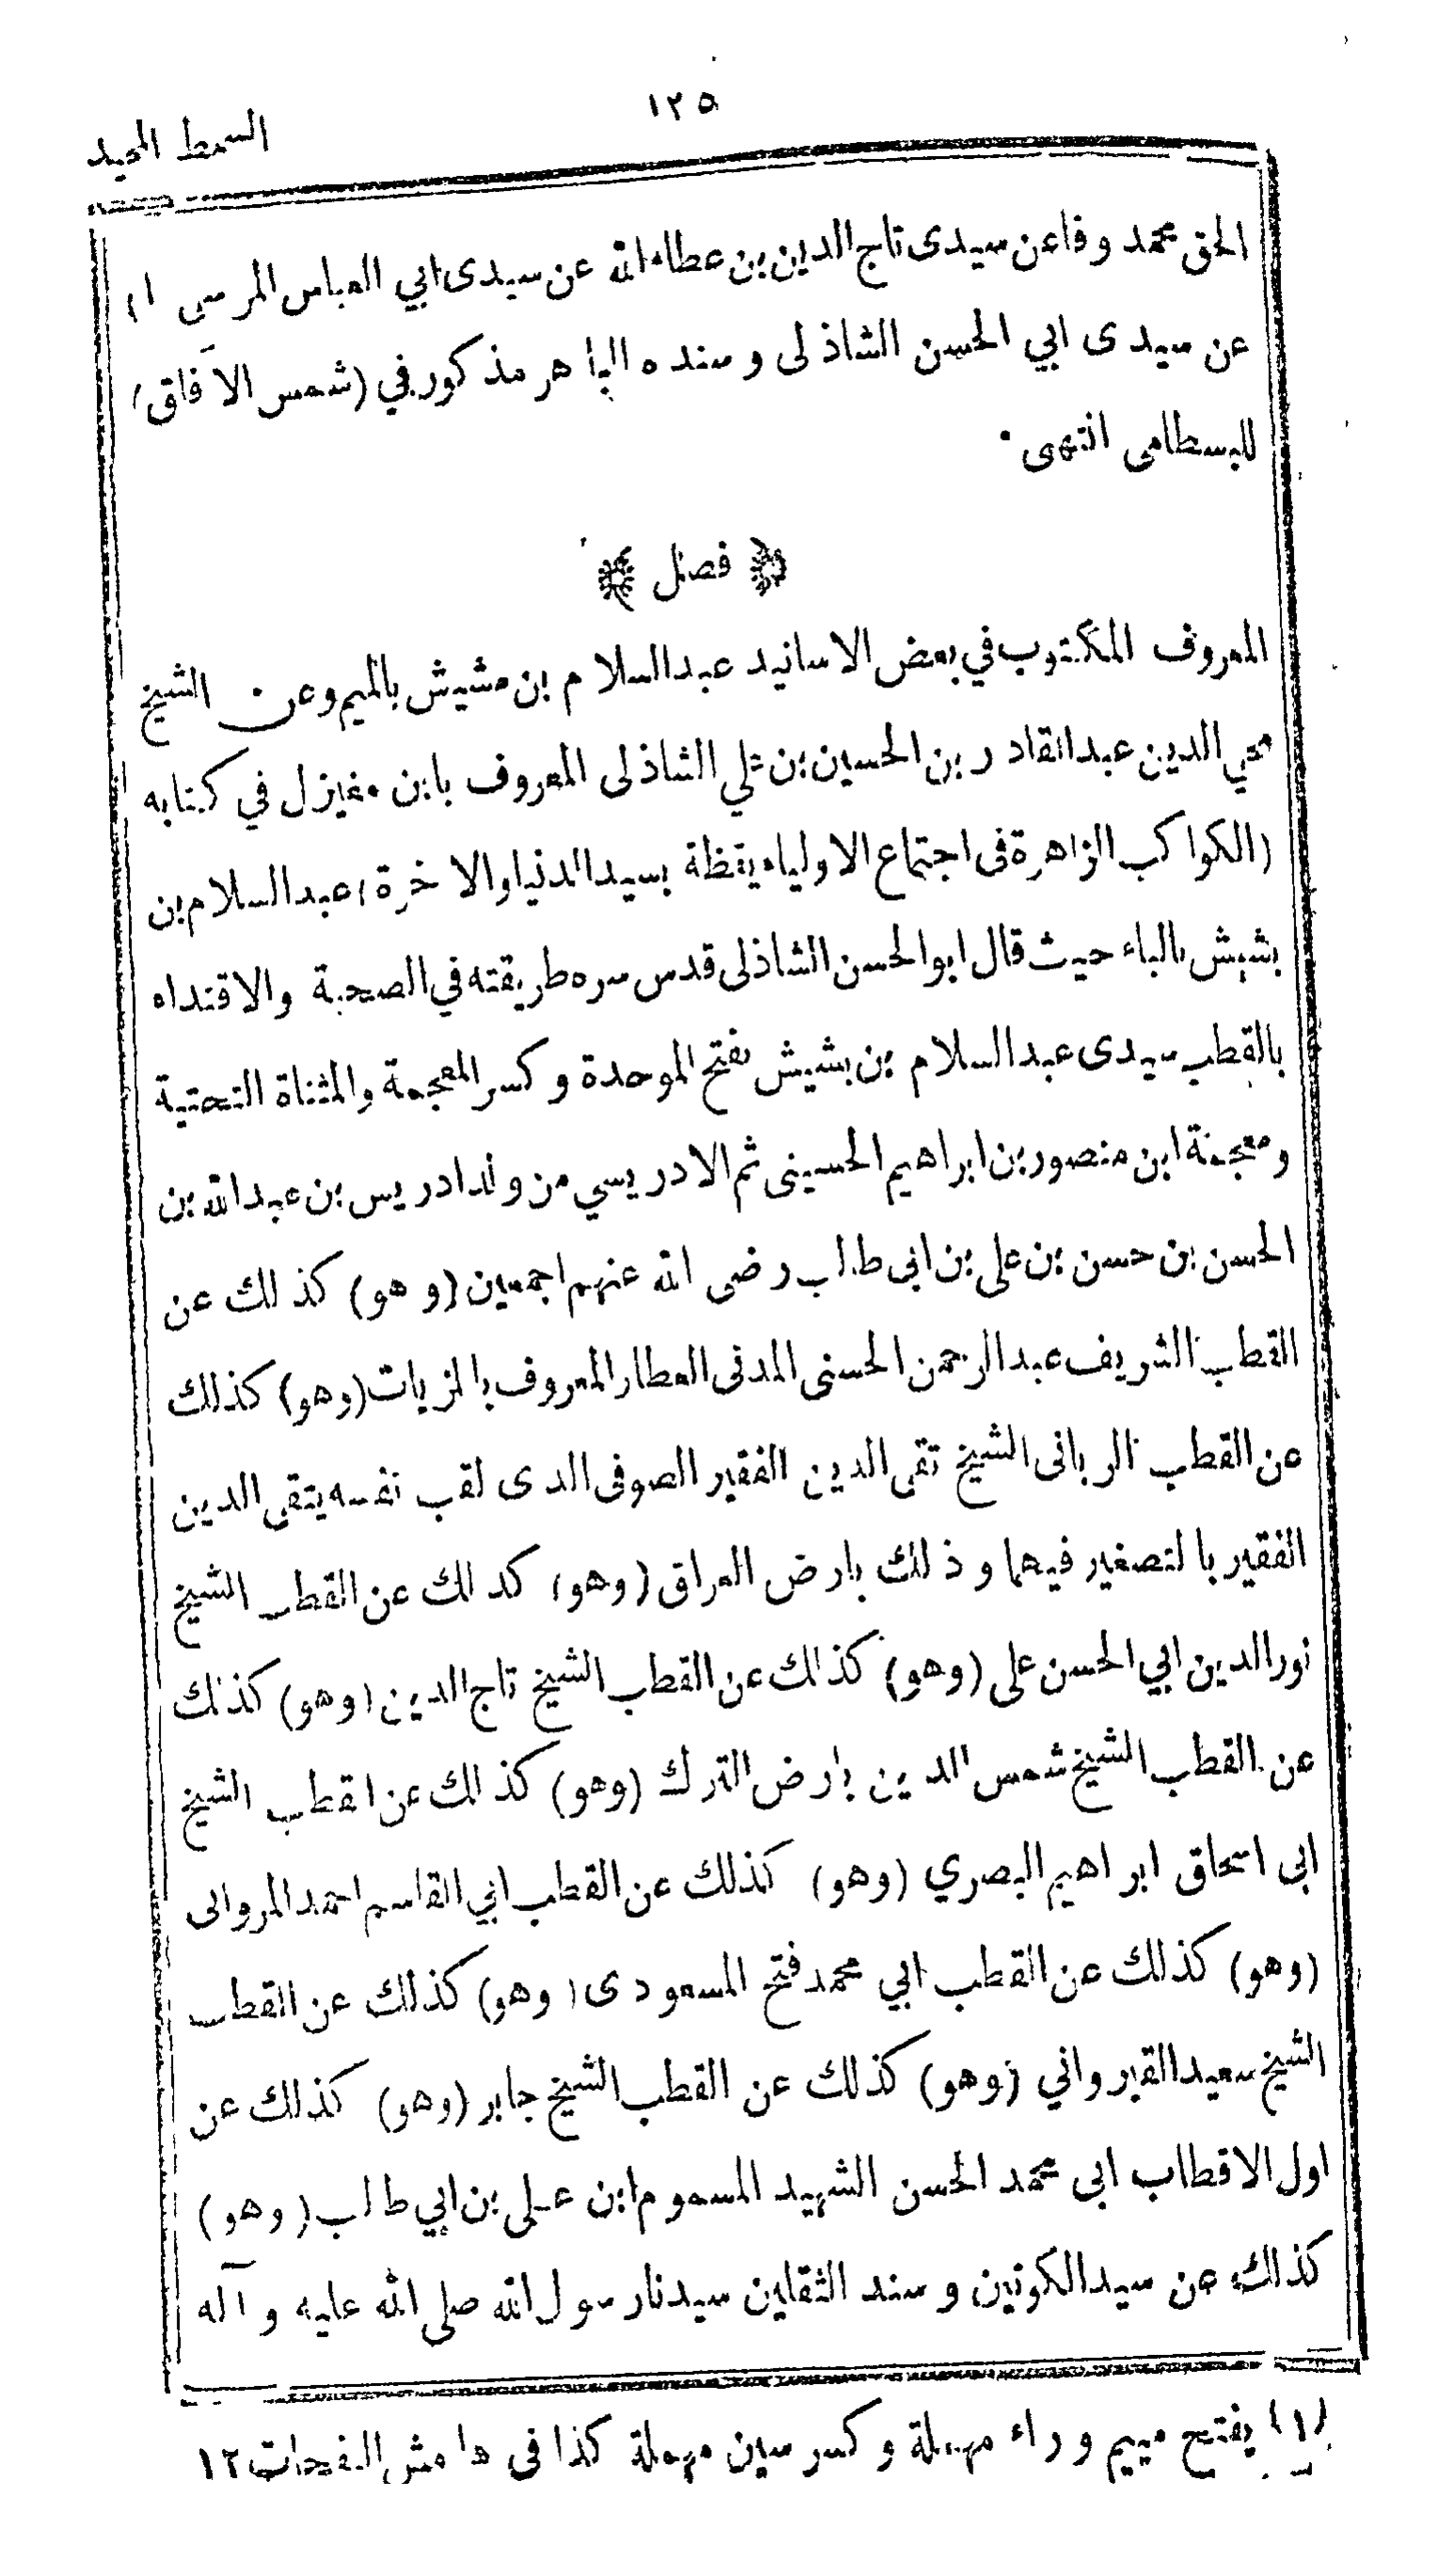 ١٢٥
السمط المجيد
الحق محمد وفا عن سيدى تاج الدين بن عطاء الله عن سيدى ابي العباس المرسي (١)
عن سيدى ابي الحسن الشاذلى وسنده الباهر مذكور في (شمس الآفاق)
للبسطامى انتهى ٠
﴿ فصل ﴾
المعروف المكتوب في بعض الاسانيد عبد السلام بن مشيش بالميم وعن الشيخ
محي الدين عبد القادر بن الحسين بن علي الشاذلى المعروف بابن مغيزل في كتابه
(الكواكب الزاهرة فى اجتماع الاولياء يقظة بسيد الدنيا والاخرة) عبد السلام بن
بشيش بالباء حيث قال ابو الحسن الشاذلى قدس سره طريقته في الصحبة والاقتداء
بالقطب سيدى عبد السلام بن بشيش بفتح الموحدة وكسر المعجمة والمثناة التحتية
ومعجمة ابن منصور بن ابراهيم الحسينى ثم الادريسي من ولد ادريس بن عبد الله بن
الحسن بن حسن بن على بن ابي طالب رضى الله عنهم اجمعين (وهو) كذلك عن
القطب الشريف عبد الرحمن الحسنى المدنى العطار المعروف بالزيات (وهو) كذلك
عن القطب الربانى الشيخ تقى الدين الفقير الصوفى الدى لقب نفسه بتقى الدين
الفقير بالتصغير فيهما وذلك بارض العراق (وهو) كدلك عن القطب الشيخ
نور الدين ابي الحسن على (وهو) كذلك عن القطب الشيخ تاج الدين (وهو) كذلك
عن القطب الشيخ شمس الدين بارض الترك (وهو) كذلك عن القطب الشيخ
ابى اسحاق ابراهيم البصري (وهو) كذلك عن القطب ابي القاسم احمد المروانى
(وهو) كذلك عن القطب ابي محمد فتح المسعودى (وهو) كذلك عن القطب
الشيخ سعيد القيرواني (وهو) كذلك عن القطب الشيخ جابر (وهو) كذلك عن
اول الاقطاب ابى محمد الحسن الشهيد المسموم ابن على بن ابي طالب (وهو)
كذلك عن سيد الكونين وسند الثقلين سيدنا رسول الله صلى الله عليه وآله
(١) بفتح ميم وراء مهملة وكسر سين مهملة كذا فى هامش النفحات ١٢